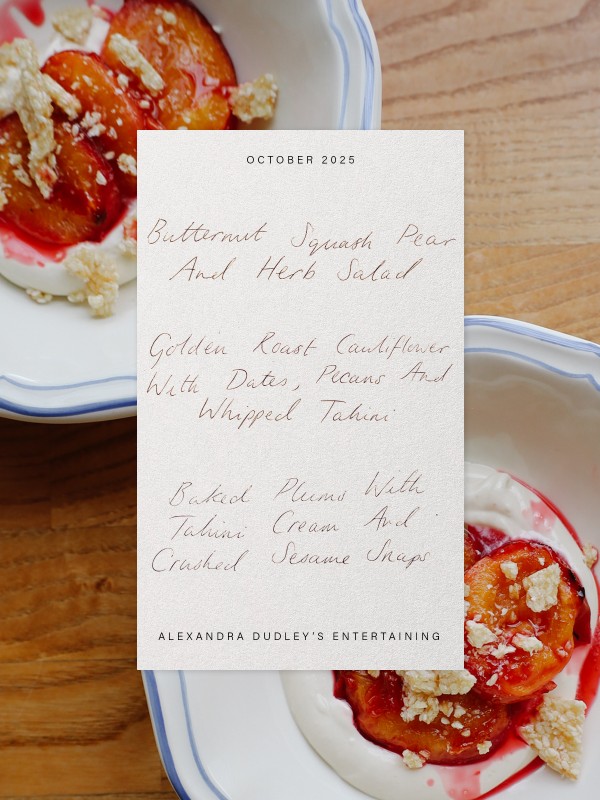 OCTOBER 2025
Butternut Squash Pear
And Herb Salad
Golden Roast Cauliflower
With Dates, Pecans And
Whipped Tahini
Baked Plums With
Tahini Cream And
Crushed Sesame Snaps
ALEXANDRA DUDLEY'S ENTERTAINING